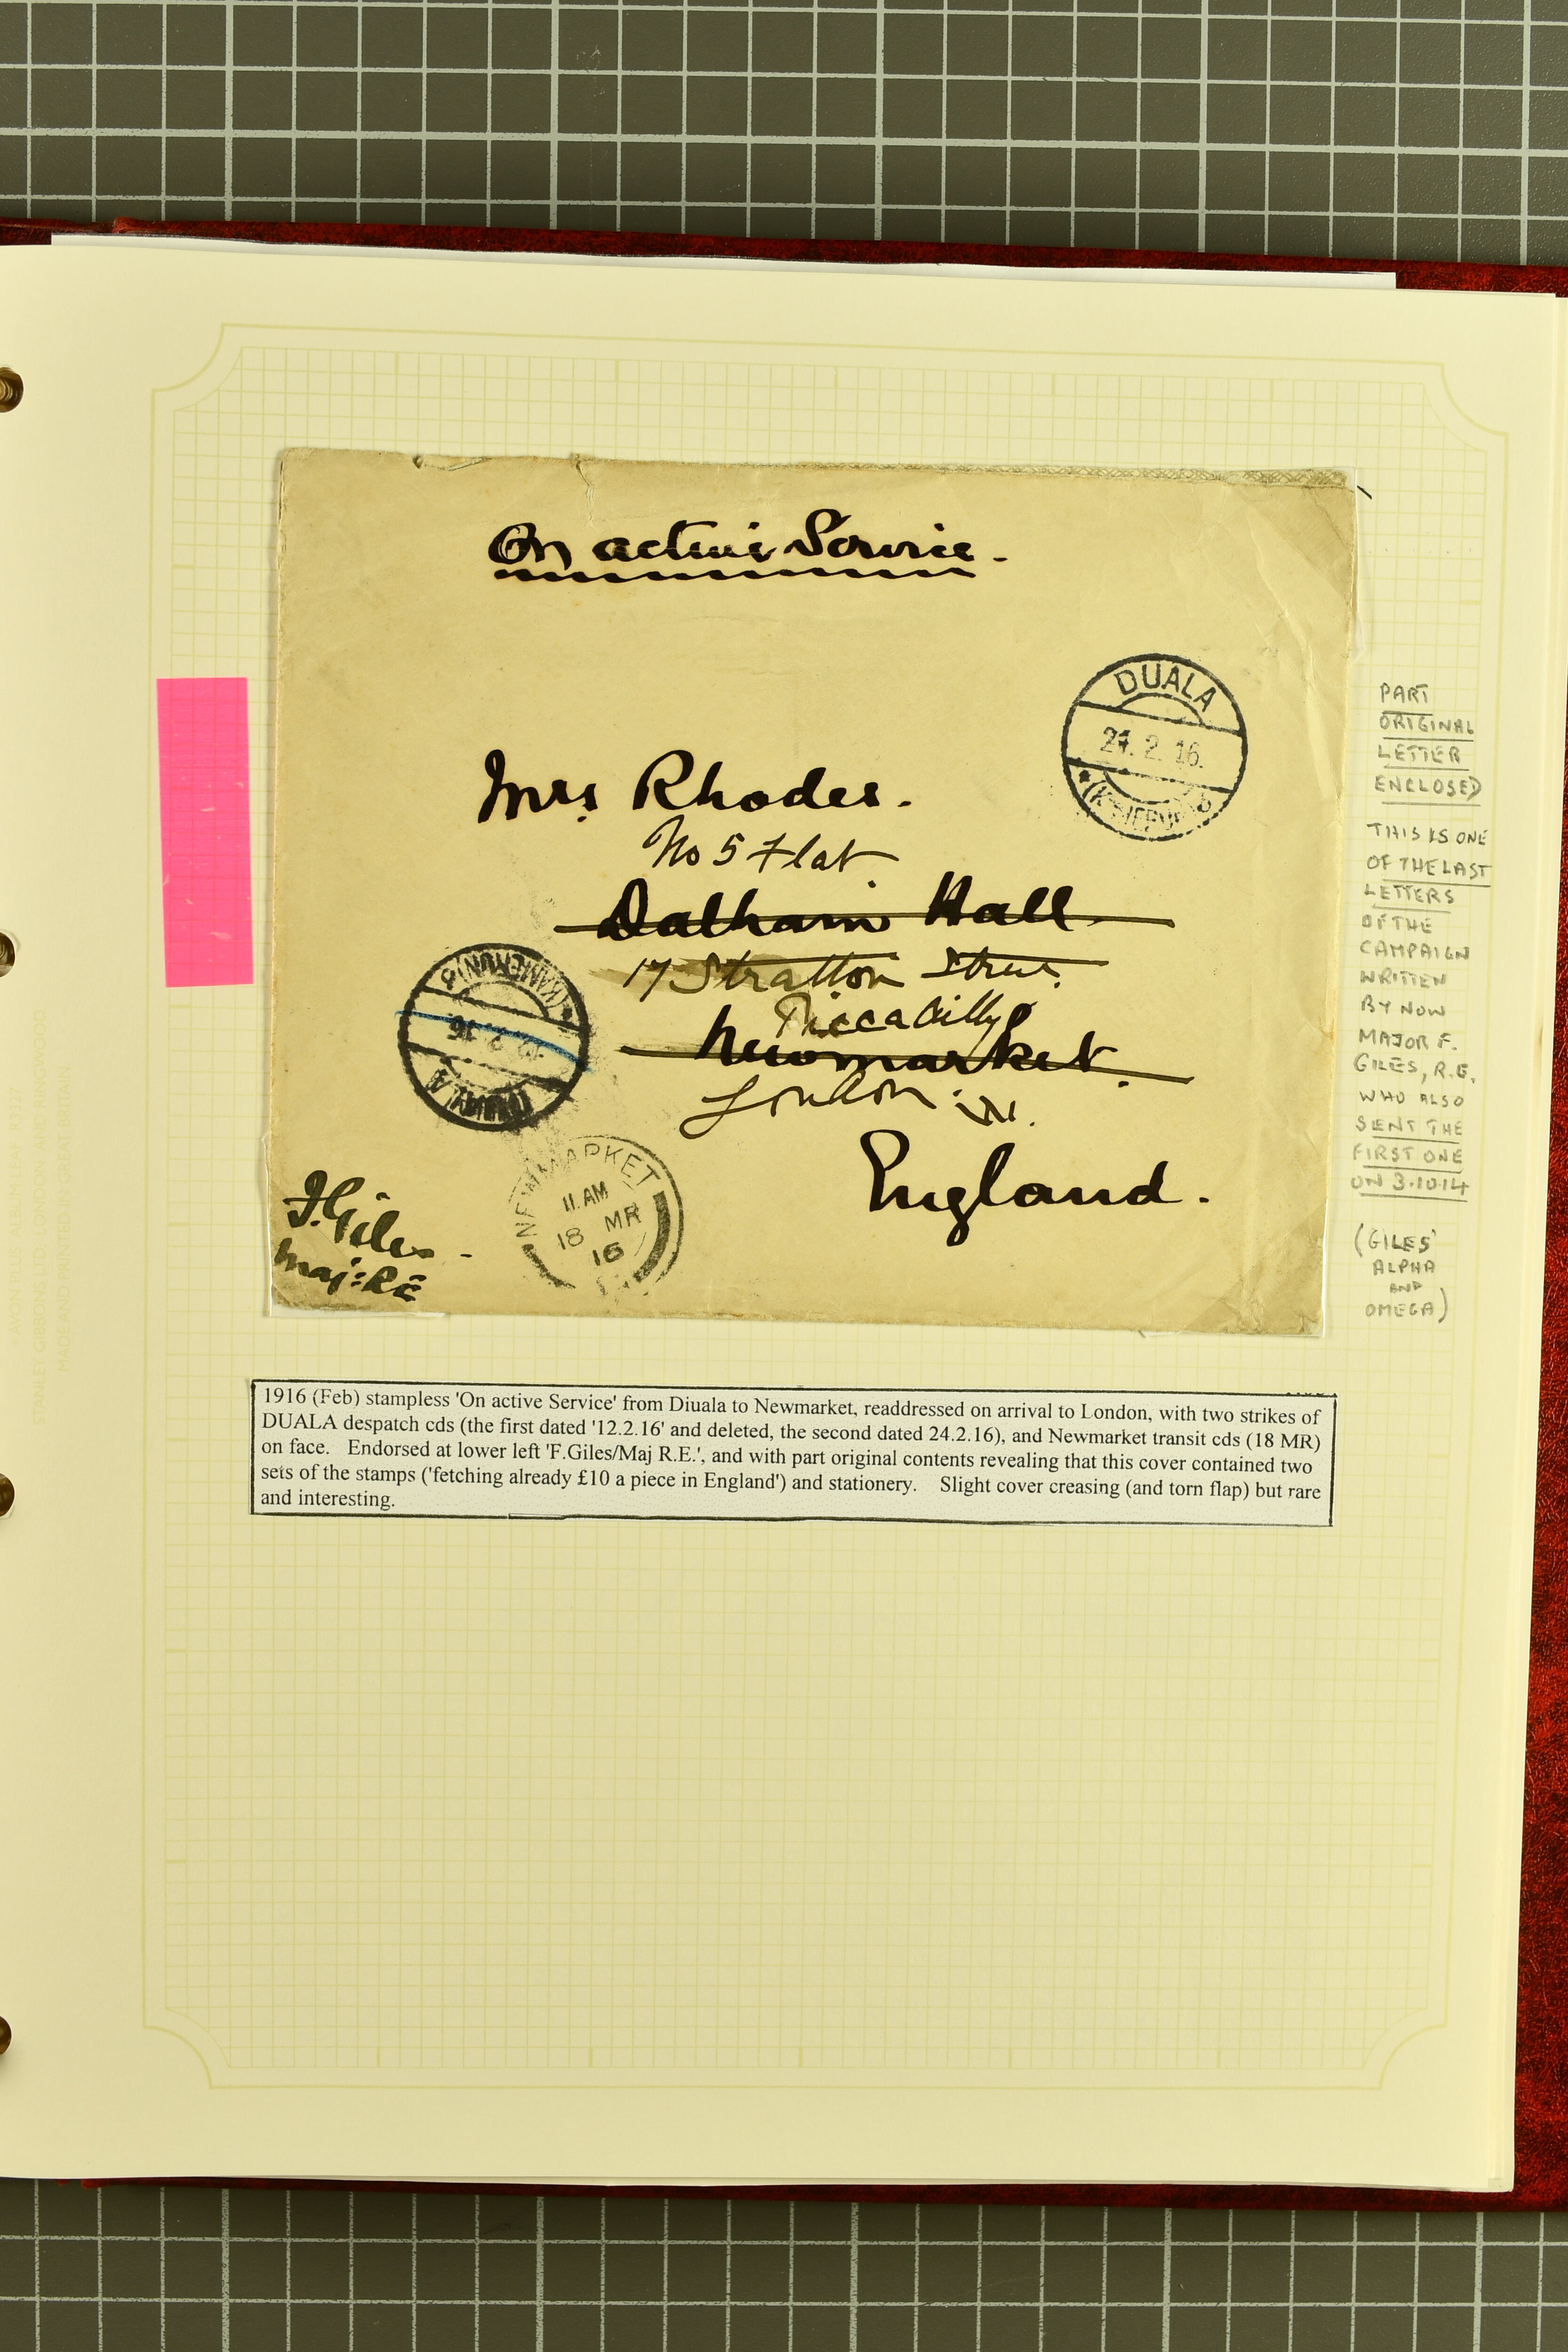 On active Service.
DUALA
24.2.16.
Mrs Rhodes.
No 5 Flat.
Dalham Hall
17 Stratton Street.
Piccadilly
Newmarket.
London. W.
England.
(KAMERUN) b
12.2.16
DUALA
NEWMARKET
11. AM
18 MR
16
F. Giles -
Maj: RE
PART
ORIGINAL
LETTER
ENCLOSED
THIS IS ONE
OF THE LAST
LETTERS
OF THE
CAMPAIGN
WRITTEN
BY NOW
MAJOR F.
GILES, R.E.
WHO ALSO
SENT THE
FIRST ONE
ON 3.10.14
(GILES'
ALPHA
AND
OMEGA)
1916 (Feb) stampless 'On active Service' from Diuala to Newmarket, readdressed on arrival to London, with two strikes of
DUALA despatch cds (the first dated '12.2.16' and deleted, the second dated 24.2.16), and Newmarket transit cds (18 MR)
on face. Endorsed at lower left 'F.Giles/Maj R.E.', and with part original contents revealing that this cover contained two
sets of the stamps ('fetching already £10 a piece in England') and stationery. Slight cover creasing (and torn flap) but rare
and interesting.